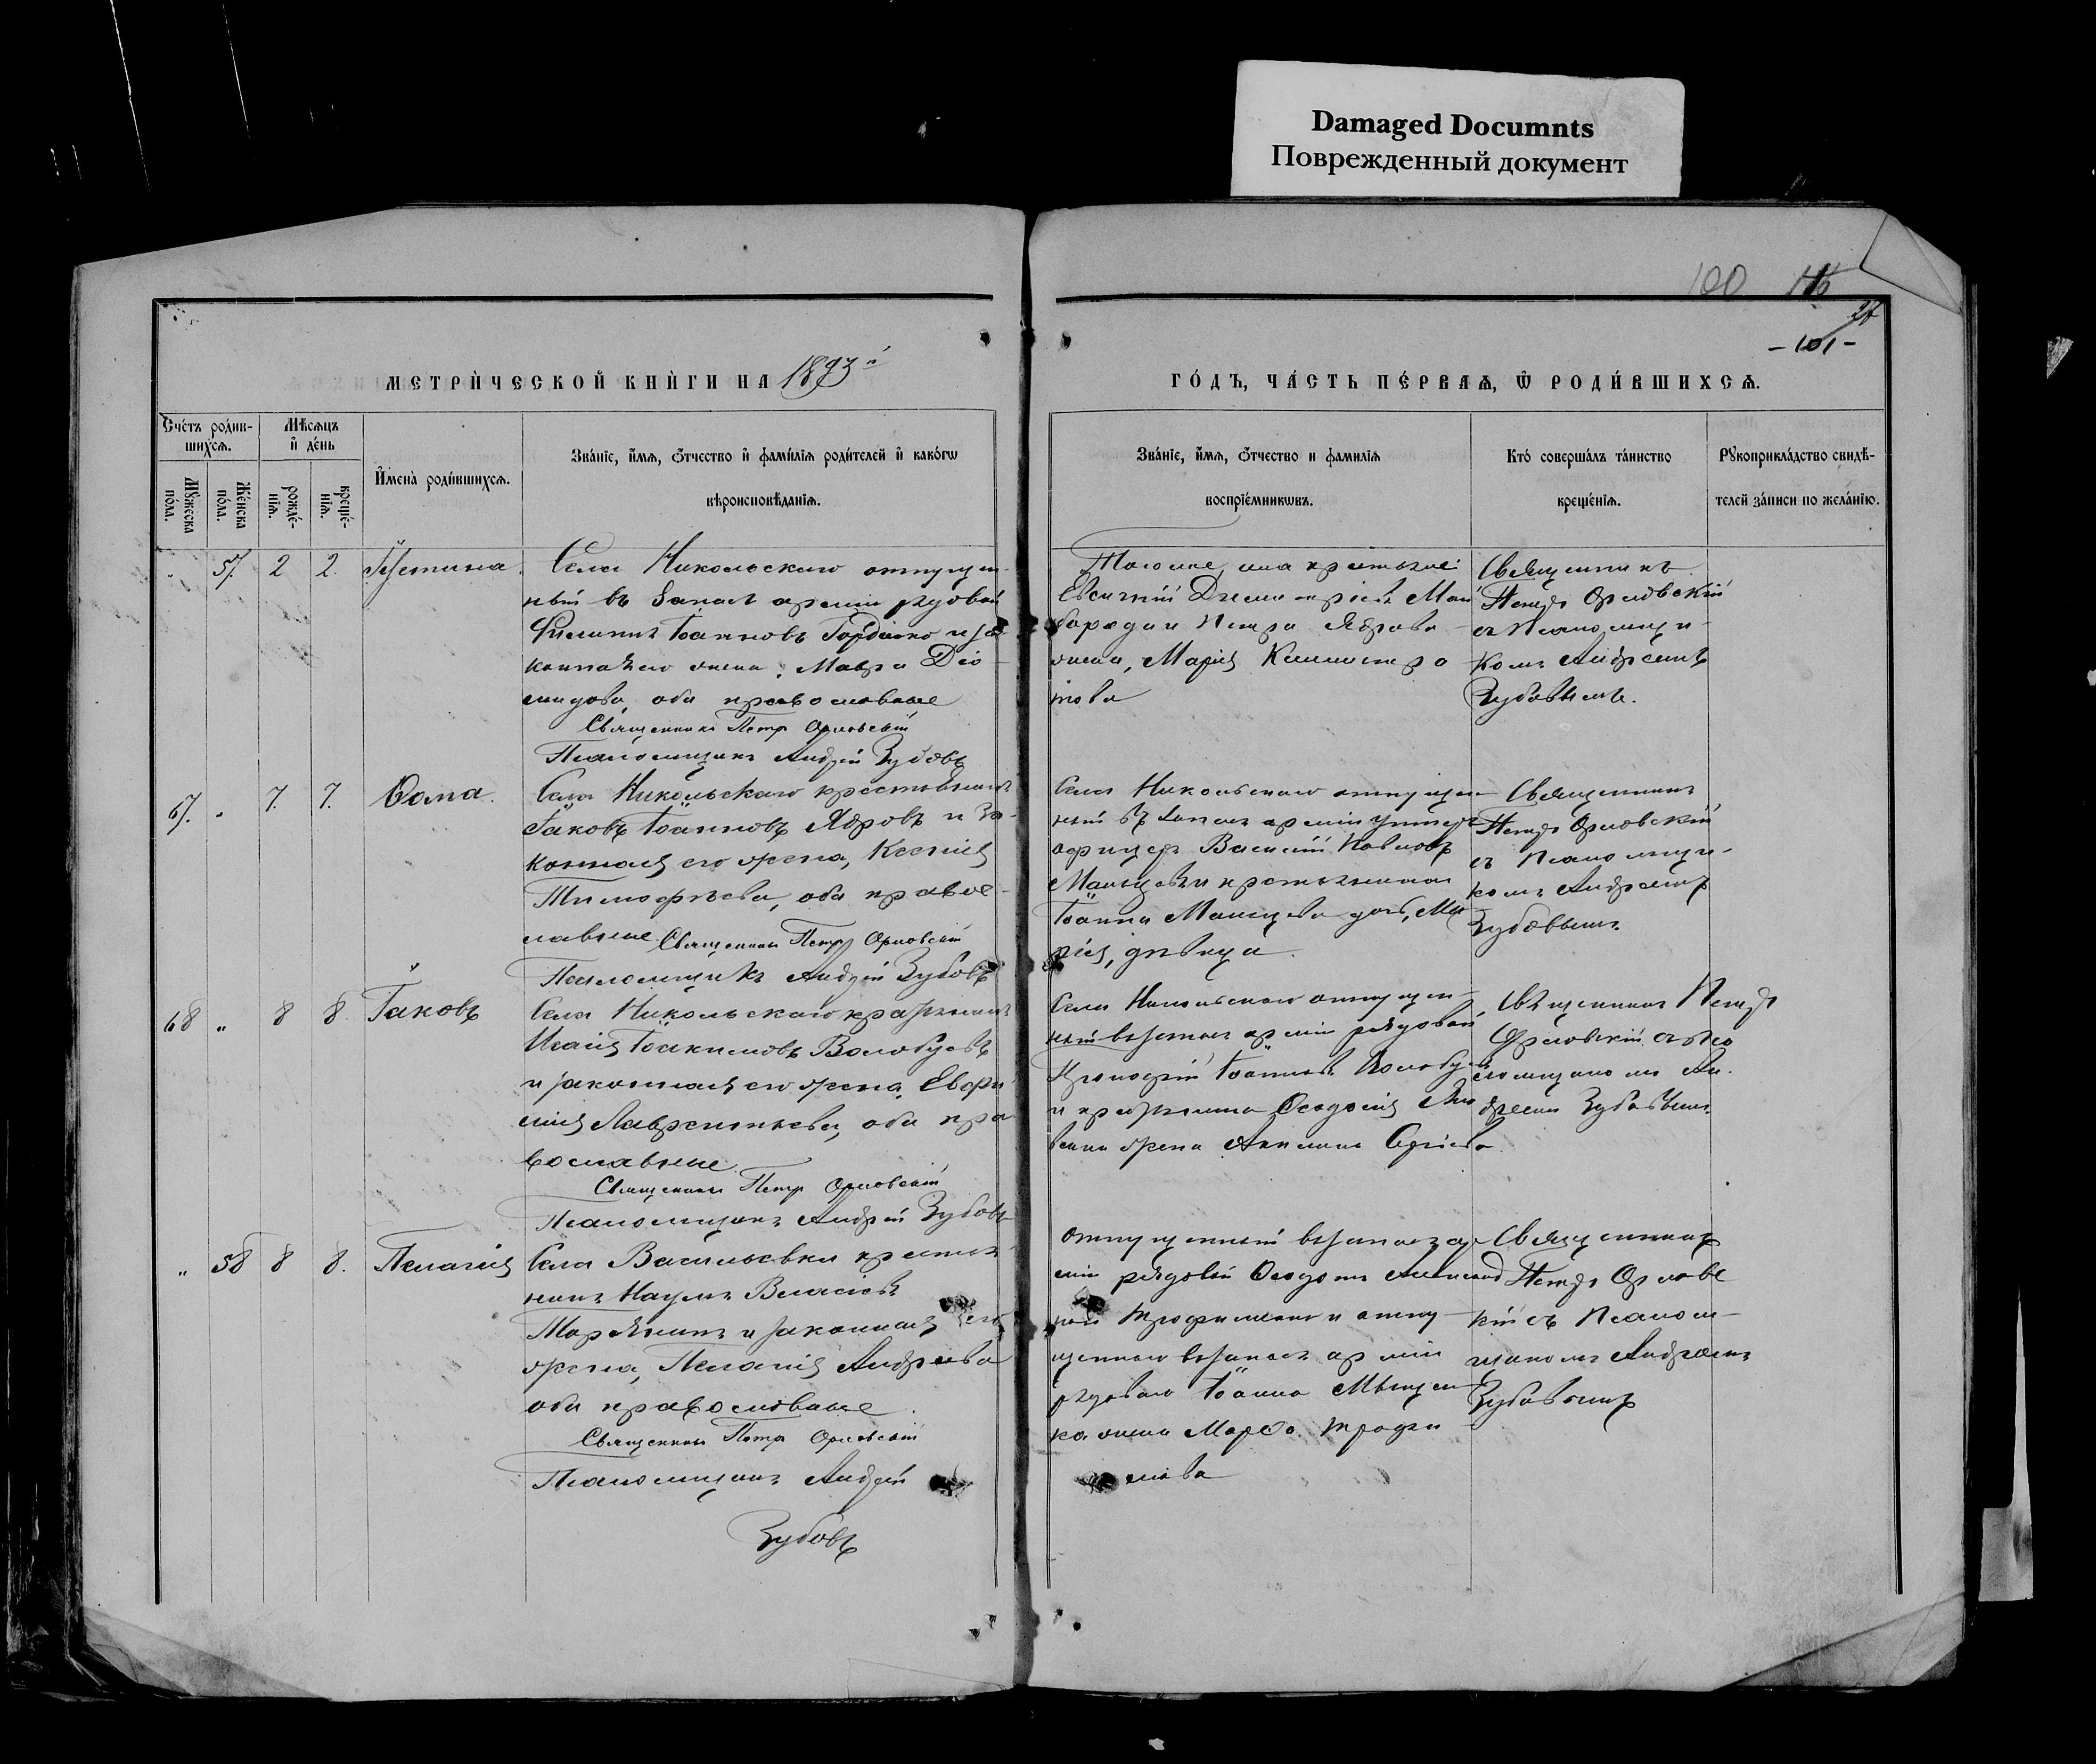 Damaged Documnts
Поврежденный документ
100
27
- 101 -
МЕТРИ́ЧЕСКОЙ КНИ́ГИ НА 1893 й
ГО́ДЪ, ЧА́СТЬ ПЕ́РВАѦ, Ѿ РОДИ́ВШИХСѦ.
Сче́тъ роди́в-
шихсѧ.
Мѣсѧцъ
и де́нь
Мꙋжеска
по́ла.
Же́нска
по́ла.
рожде́-
нїѧ.
креще́-
нїѧ.
Имена̀ роди́вшихсѧ.
Зва́нїе, и́мѧ, ѻ́тчество и фами́лїѧ роди́телей и како́гѡ
вѣроисповѣ́данїѧ.
Зва́нїе, и́мѧ, ѻ́тчество и фами́лїѧ
воспрїе́мникѡвъ.
Кто̀ соверша́лъ та́инство
креще́нїѧ.
Рꙋкоприкла́дство свидѣ́-
телей за́писи по жела́нїю.
57. 2 2. Іустина.
Села Никольскаго отпущен-
ный въ запасъ арміи рядовой
Филиппъ Іоанновъ Гордіенко и за-
конная его жена, Мавра Діо-
мидова, оба православные
Священникъ Петръ Орловскій
Псаломщикъ Андрей Зубовъ
Того же села крестьяне
Евсигній Димитріевъ Май
борода и Петра Ядрова
жена, Марія Калистра
това
Священникъ
Петръ Орловскій
съ Псаломщи-
комъ Андреемъ
Зубовымъ.
67. „ 7. 7. Ѳома.
Села Никольскаго крестьянинъ
Іаковъ Іоанновъ Ядровъ и за-
конная его жена, Ксенія
Тимофѣева, оба право-
славные Священникъ Петръ Орловскій
Псаломщикъ Андрей Зубовъ
Села Никольскаго отпущен-
ный въ запасъ арміи унтеръ
офицеръ Василій Павловъ
и крестьянина
Іоанна дочь, Ма
рія, дѣвица.
Священникъ
Петръ Орловскій
съ Псаломщи-
комъ Андреемъ
Зубовымъ.
68 „ 8 8. Іаковъ
Села Никольскаго крестьянинъ
Исаія Іоакимовъ Волобуевъ
и законная его жена, Евфи
мія Лаврентьева, оба пра
вославные
Священникъ Петръ Орловскій
Псаломщикъ Андрей Зубовъ
Села Никольскаго отпущен-
ный въ запасъ арміи рядовой
Прокофій Іоанновъ Волобуевъ
и крестьянина Ѳеодосія
жена Акилина Сергіева
Священникъ Петръ
Орловскій съ Пса
ломщикомъ Ан-
дреемъ Зубовымъ.
„ 58 8 8. Пелагія
Села Васильевки крестья
нинъ Наумъ Власіевъ
и законная его
жена, Пелагія Андреева
оба православные.
Священникъ Петръ Орловскій
Псаломщикъ Андрей
Зубовъ
отпущенный въ запасъ ар
міи рядовой
и отпу-
щеннаго въ запасъ арміи
рядоваго Іоанна
жена Марѳа Трофи
мова
Священникъ
Петръ Орловс
кій съ Псалом-
щикомъ Андреемъ
Зубовымъ